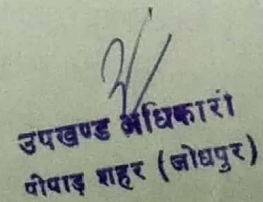 उपखण्ड अधिकारी
पीपाड़ शहर (जोधपुर)